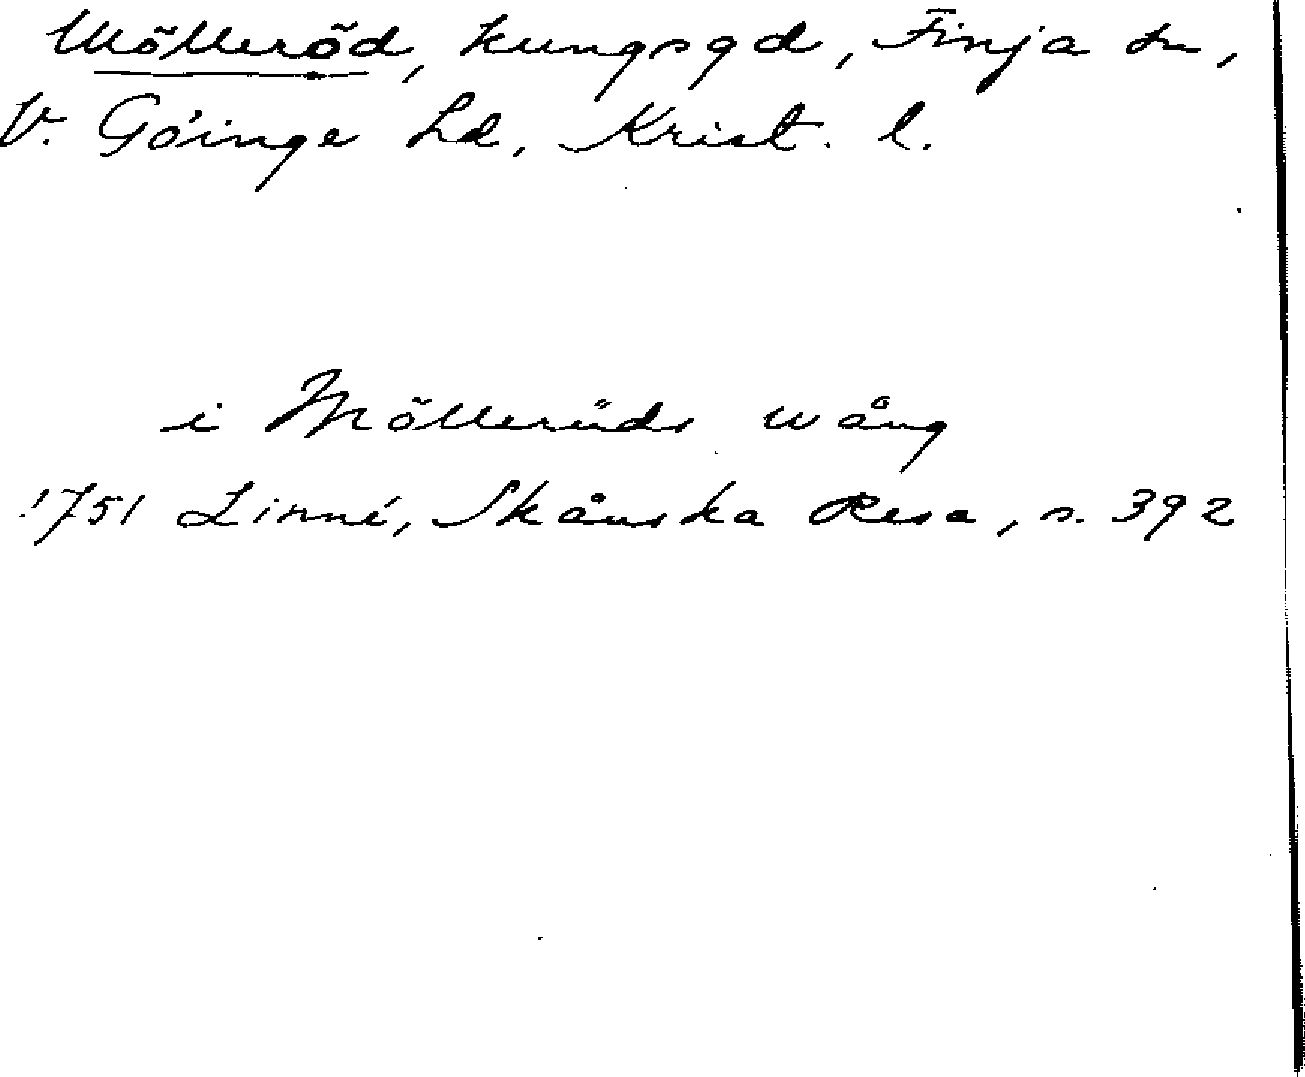 Mölleröd, kungsgd, Finja sn,
V. Göinge hd, Krist. l.
i Mölleruds wång
1751 Linné, Skånska Resa, s. 392